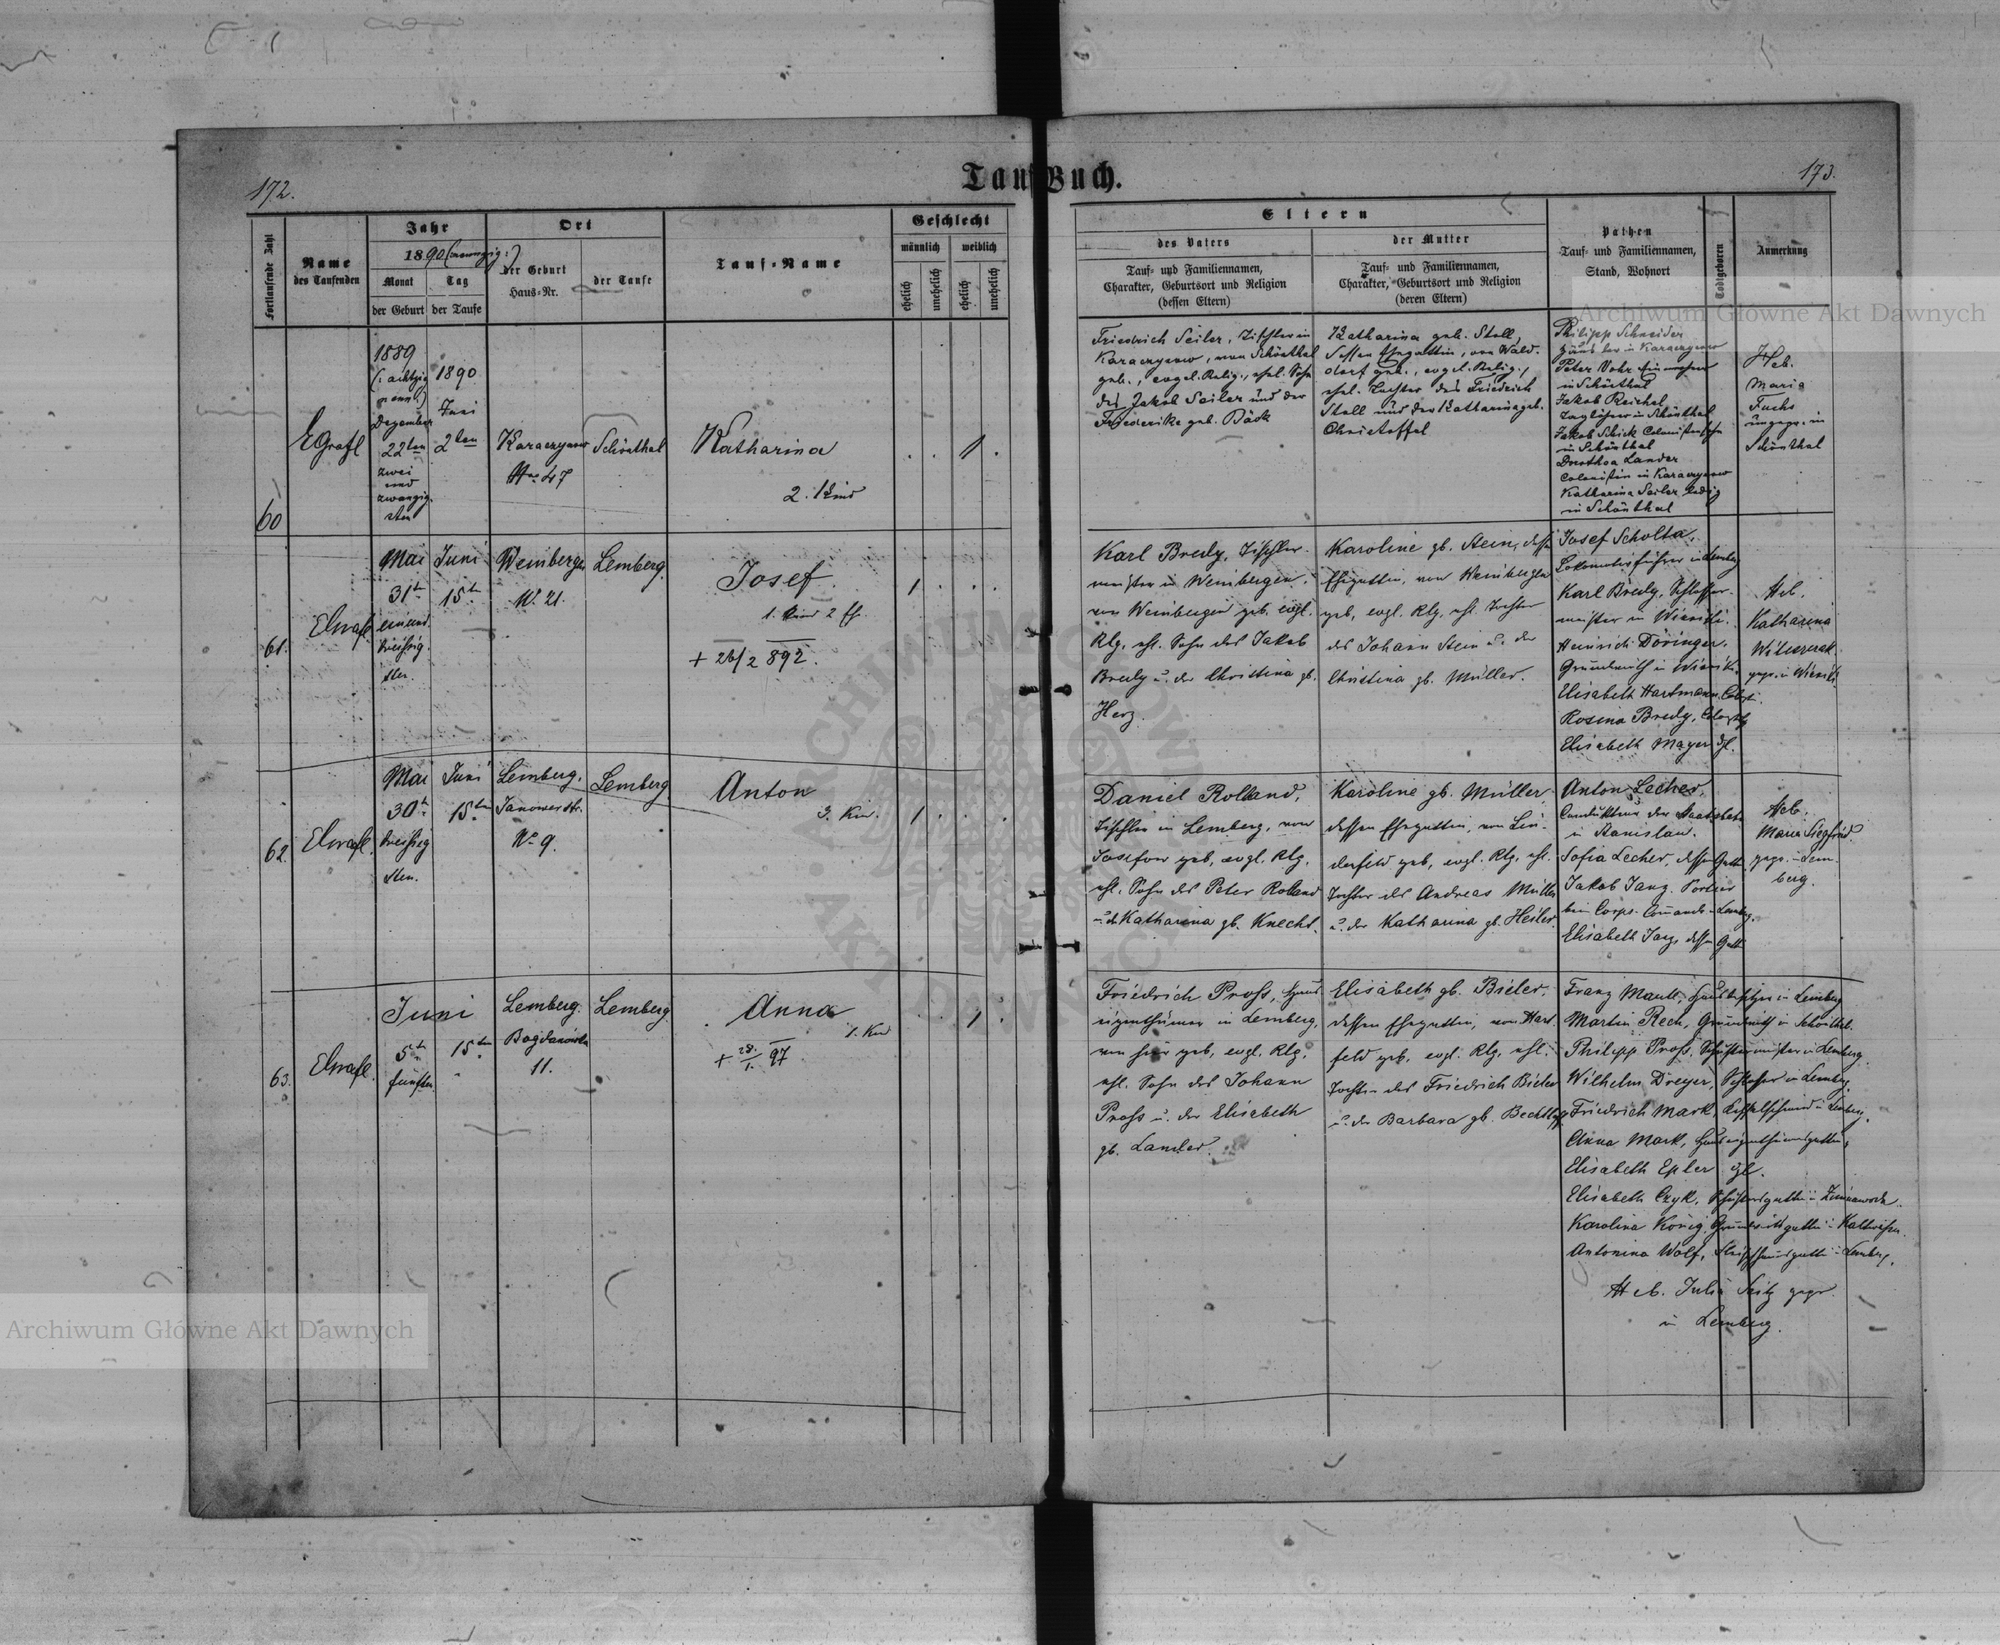 172.
173.
Tauf Buch.
Fortlaufende Zahl
Name
des Taufenden
Jahr
1890 (neunzig:)
Monat
der Geburt
Tag
der Taufe
Ort
der Geburt
Haus-Nr.
der Taufe
Tauf-Name
Geschlecht
männlich
weiblich
ehelich
unehelich
ehelich
unehelich
Eltern
des Vaters
Tauf- und Familiennamen,
Charakter, Geburtsort und Religion
(dessen Eltern)
der Mutter
Tauf- und Familiennamen,
Charakter, Geburtsort und Religion
(deren Eltern)
Pathen
Tauf- und Familiennamen,
Stand, Wohnort
Todtgeboren
Anmerkung
60
1889
(: achtzig
neun:)
Dezember
22ten
zwei
und
zwanzig-
sten
1890
Juni
2ten
Karaczynow
Hno 47
Schönthal
Katharina
2. Kind
1
Friedrich Seiler, Tischler in
Karaczynow, von Schönthal
geb., evgel. Relig., ehel. Sohn
des Jakob Seiler und der
Friederike geb. Bäck
Katharina geb. Stoll,
dessen Ehegattin, von Wald-
dorf geb., evgel. Relig.,
ehel. Tochter des Friedrich
Stoll und der Katharina geb.
Christoffel
Philipp Schneider
in Karaczynow
Peter Vohr
in Schönthal
Jakob Reichel
Taglöhner in Schönthal
Jakob Schick Colonistensohn
in Schönthal
Dorothea Lander
Colonistin in Karaczynow
Katharina Seiler ledig
in Schönthal
Heb.
Maria
Fuchs
ungepr. in
Schönthal
61.
Mai
31te
einund
dreißig
sten.
Juni
15te
Weinbergen
No 21.
Lemberg.
Josef.
1. Kind 2 Eh.
+ 26/2 892.
1
Karl Bredy, Tischler-
meister in Weinbergen,
von Weinbergen geb. evgl.
Rlg, ehl. Sohn des Jakob
Bredy u. der Christina gb.
Herz.
Karoline gb. Stein, dessen
Ehegattin, von Weinbergen
geb, evgl. Rlg, ehl. Tochter
des Johann Stein u. der
Christina gb. Müller.
Josef Scholta,
Lokomotivführer in Lemberg
Karl Bredy, Schlosser-
meister in
Heinrich Döringer,
Grundwirth in
Elisabeth Hartmann, Colostn.
Rosina Bredy,
Elisabeth Mayer dgl.
Heb.
Katharina
62.
Mai
30te
dreißig
sten.
Juni
15ten
Lemberg.
Janowerstr.
No 9.
Lemberg
Anton
3. Kind.
1
Daniel Rolland,
Tischler in Lemberg, von
Josefow geb, evgl. Rlg,
ehl. Sohn des Peter Rolland
u. der Katharina gb. Knecht.
Karoline gb. Müller,
dessen Ehegattin, von Lin-
denfeld geb, evgl. Rlg, ehl.
Tochter des Andreas Müller
u. der Katharina gb. Heiler.
Anton Lecher,
Condukteur der Staatsbahn
in Stanislau.
Sofia Lecher, dessen Gattin
Jakob Janz, Portier
beim Corps-Comando in Lemberg.
Elisabeth Janz, dessen Gattin
Heb.
Maria Siegfried
gepr. in Lem-
berg.
63.
Juni
5te
fünften
15ten
Lemberg.
Bogdanówka
11.
Lemberg.
Anna
1. Kind
+ 28./1. 97
1
Friedrich Proß, Haus-
eigenthümer in Lemberg,
von hier geb, evgl. Rlg,
ehl. Sohn des Johann
Proß u. der Elisabeth
gb. Lander.
Elisabeth gb. Bieler,
dessen Ehegattin, von Hart-
feld geb, evgl. Rlg, ehl.
Tochter des Friedrich Bieler
u. der Barbara gb. Bechtloff.
Franz Manti, Hausbesitzer in Lemberg
Martin Rech, Grundwirth in Schönthal.
Philipp Proß, Schustermeister in Lemberg
Wilhelm Dreyer, Schlosser in Lemberg.
Friedrich Mark, Kesselschmied in Lemberg.
Anna Mark, Hauseigenthümersgattin,
Elisabeth Epler dgl.
Elisabeth Czyk, Schustersgattin in Zimnawoda.
Karolina König, Grundwirthsgattin in
Antonina Wolf, Fleischhauersgattin in Lemberg.
Heb. Julia Seitz gepr.
in Lemberg.
Archiwum Główne Akt Dawnych
Archiwum Główne Akt Dawnych